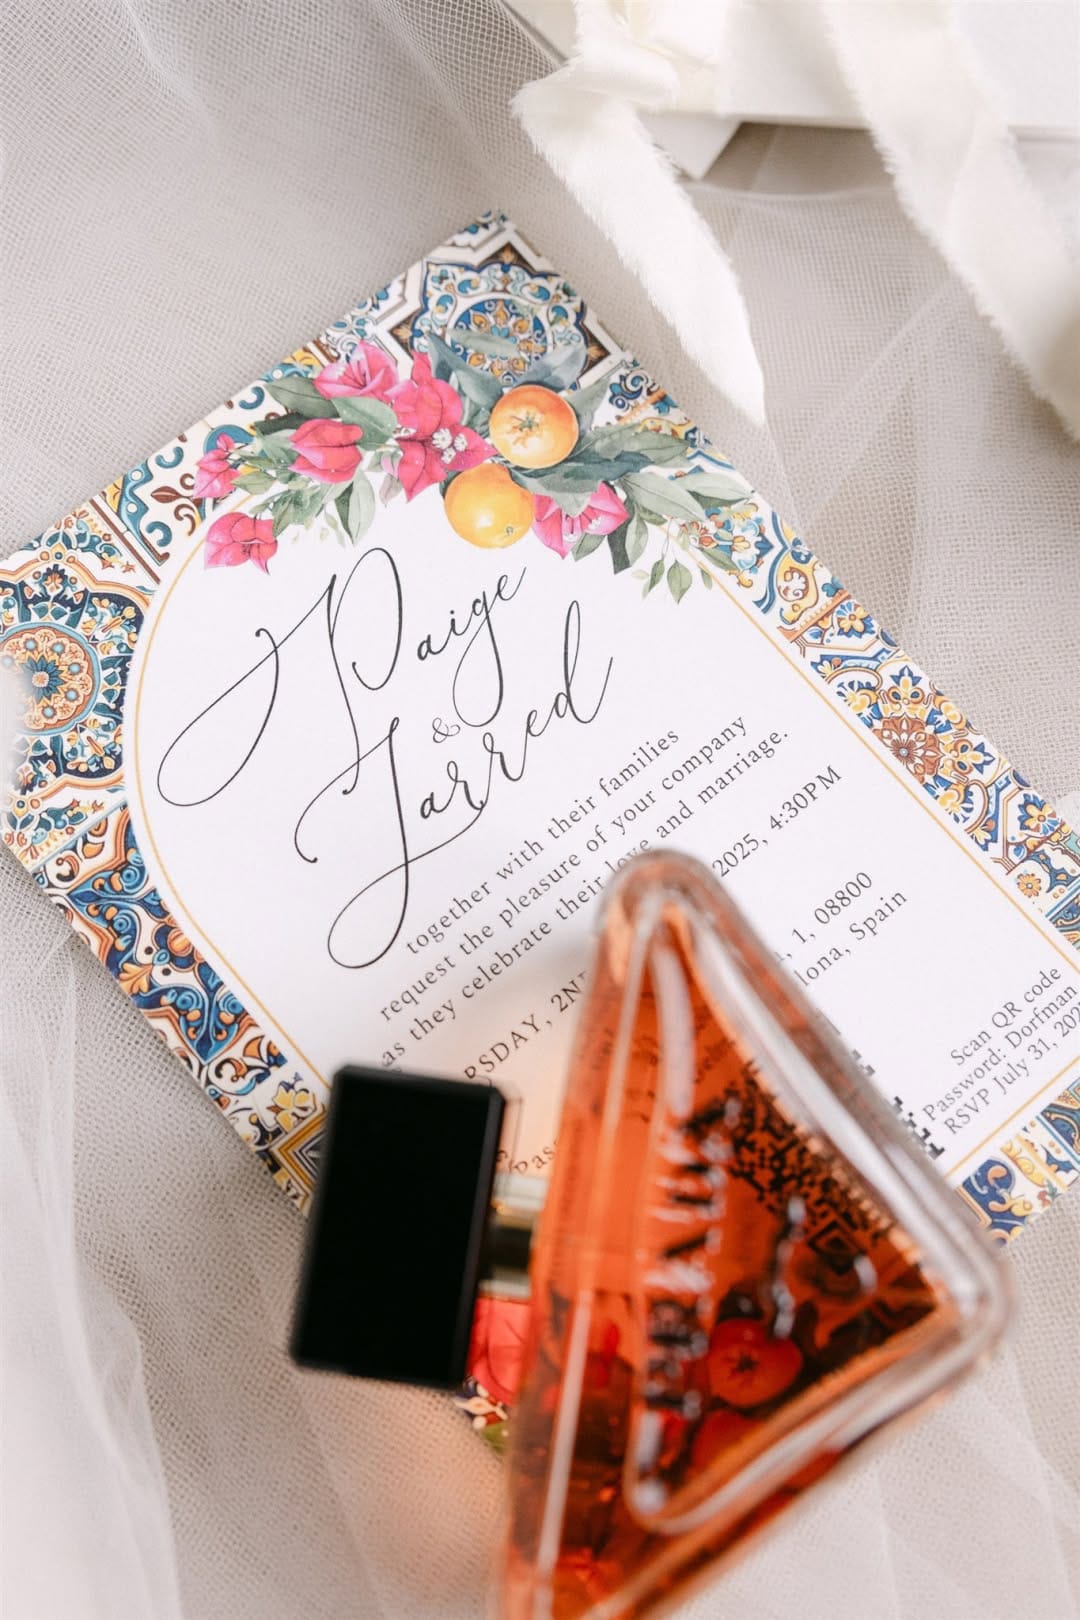 Paige
&
Jarred
together with their families
request the pleasure of your company
as they celebrate their love and marriage.
2025, 4:30PM
1, 08800
Spain
Scan QR code
Password: Dorfman
RSVP July 31,
PRADA